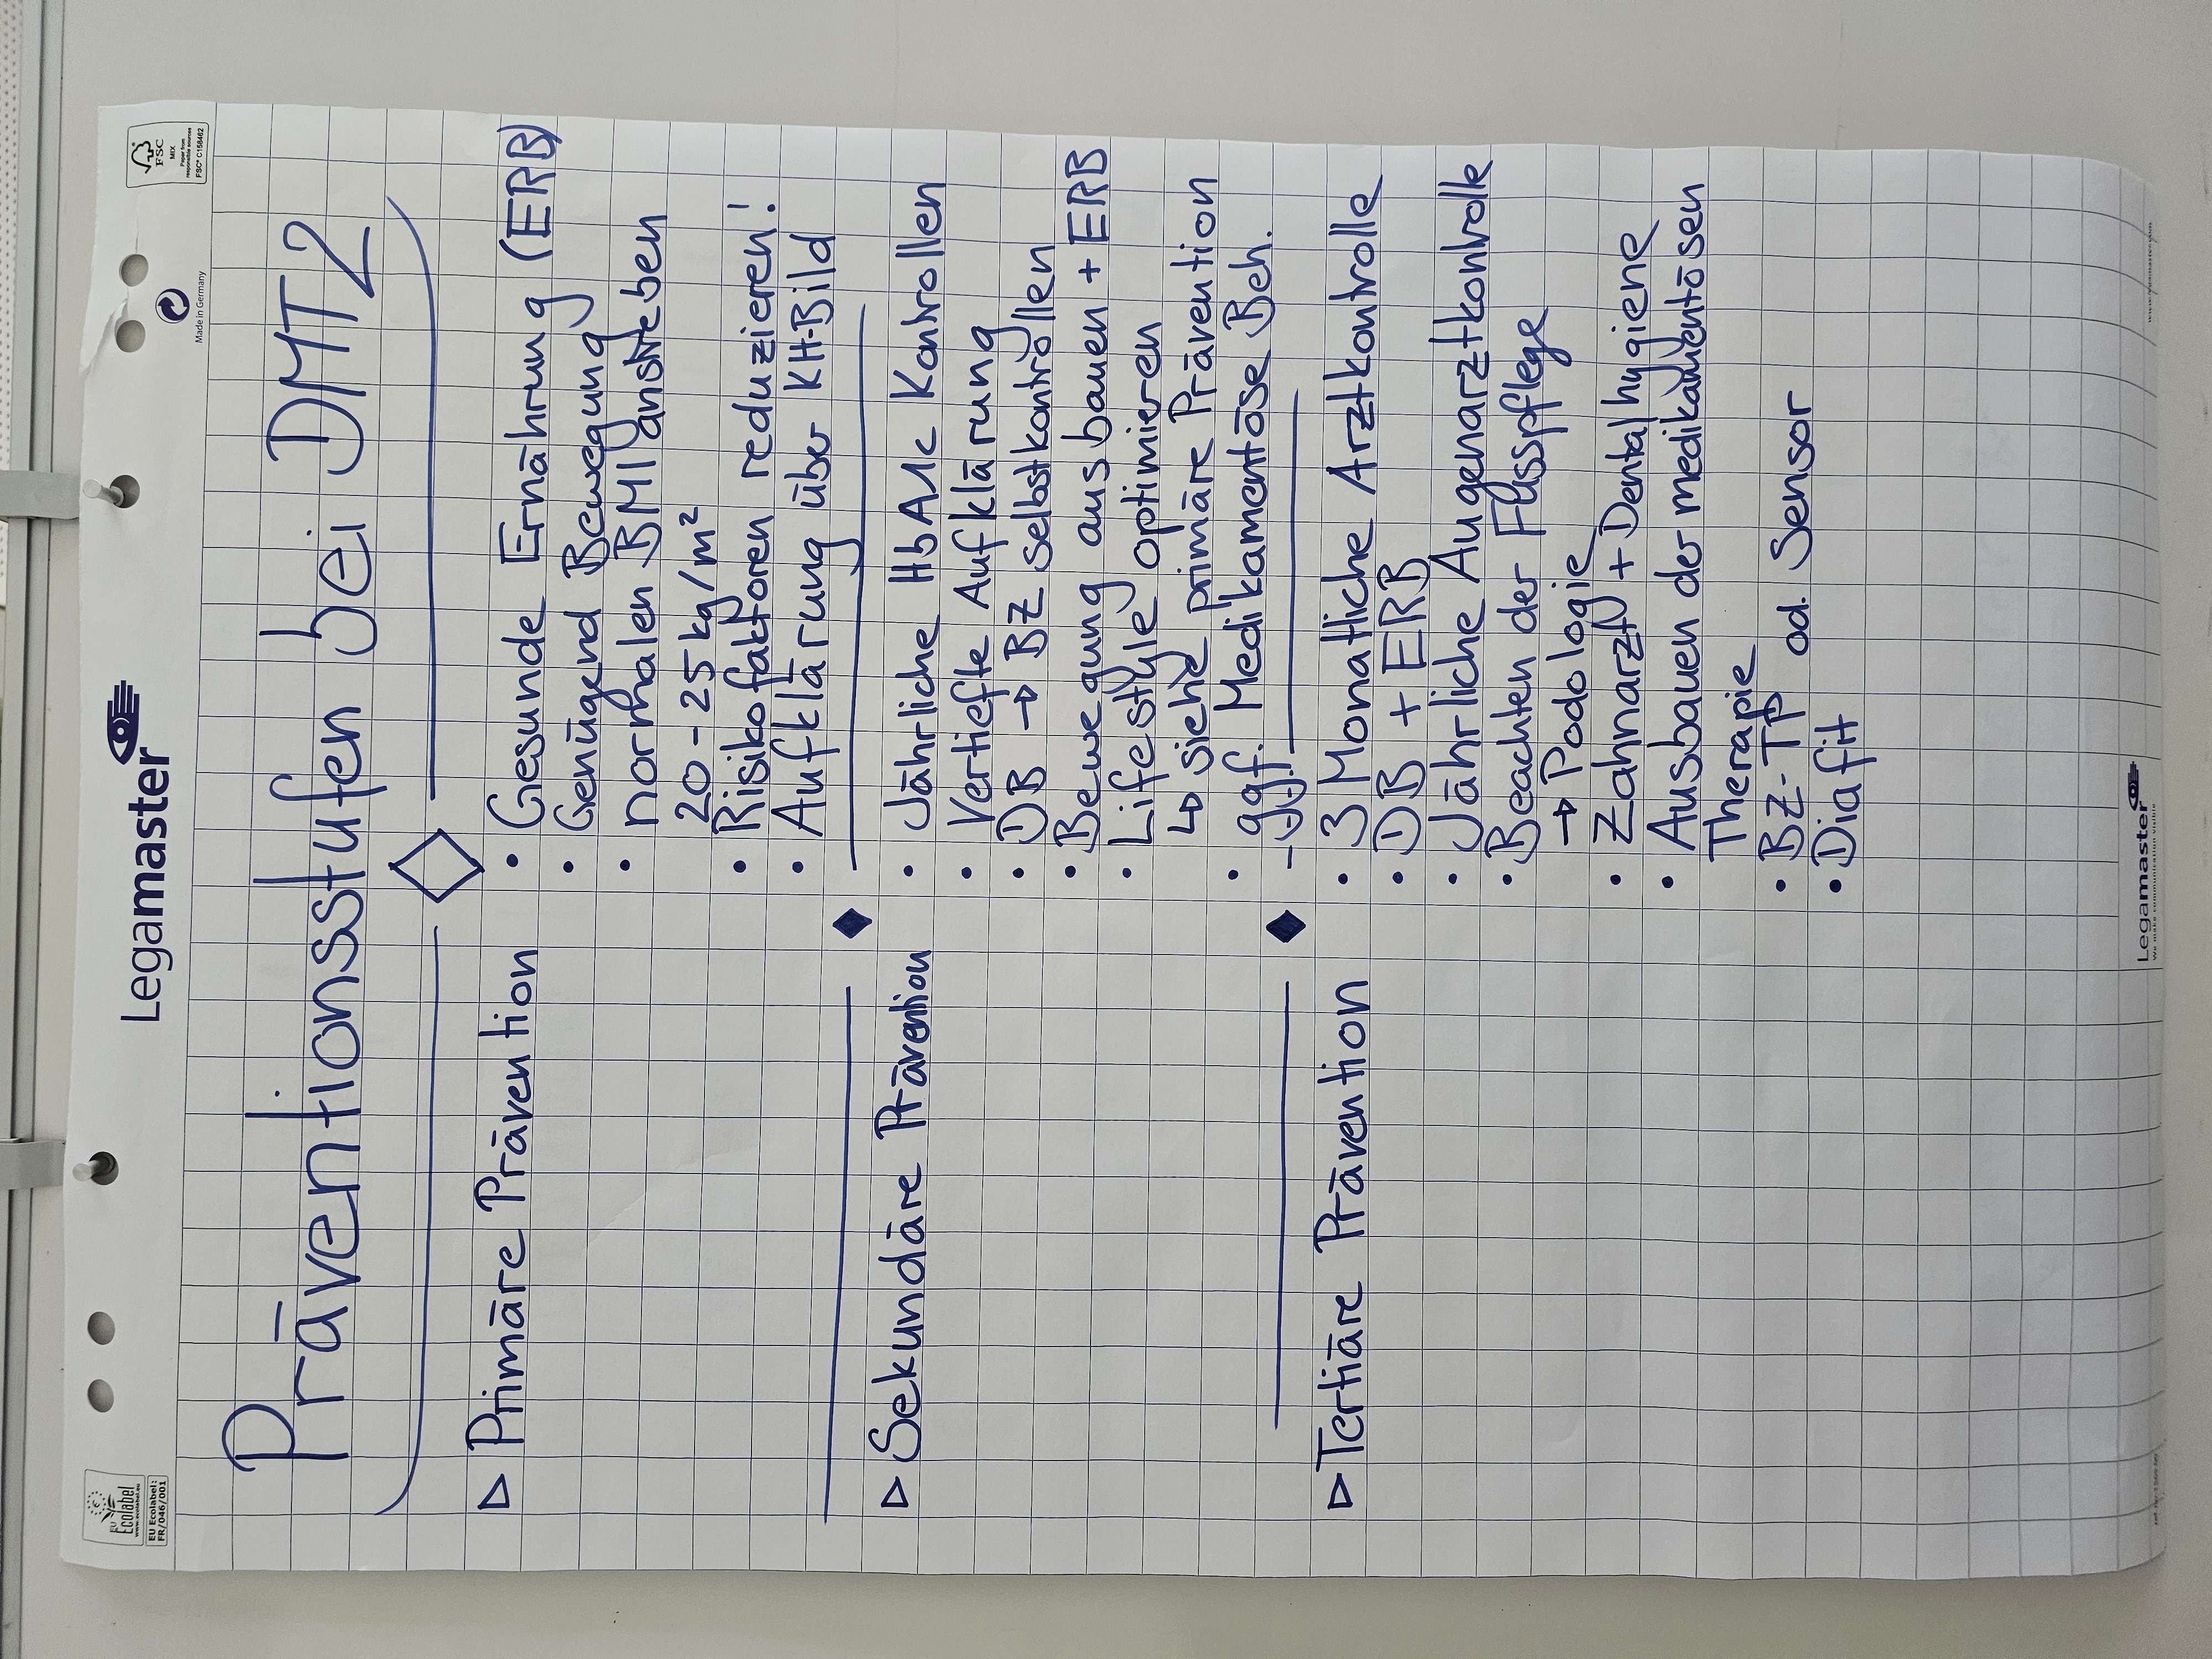 Legamaster
EU
Ecolabel
www.ecolabel.eu
EU Ecolabel:
FR/046/001
Made in Germany
FSC
MIX
Paper from
responsible sources
FSC® C158462
Präventionsstufen bei DMT2
▷ Primäre Prävention
• Gesunde Ernährung (ERB)
• Genügend Bewegung
• normalen BMI anstreben
20-25 kg/m²
• Risikofaktoren reduzieren!
• Aufklärung über KH-Bild
▷ Sekundäre Prävention
• Jährliche HbA1c Kontrollen
• Vertiefte Aufklärung
• DB → BZ selbstkontrollen
• Bewegung ausbauen + ERB
• Lifestyle optimieren
↳ siehe primäre Prävention
• ggf. Medikamentöse Beh.
▷ Tertiäre Prävention
• 3 Monatliche Arztkontrolle
• DB + ERB
• Jährliche Augenarztkontrolle
• Beachten der Fusspflege
→ Podologie
• Zahnarzt + Dentalhygiene
• Ausbauen der medikamentösen
Therapie
• BZ-TP od. Sensor
• Diafit
Legamaster
We make communication visible